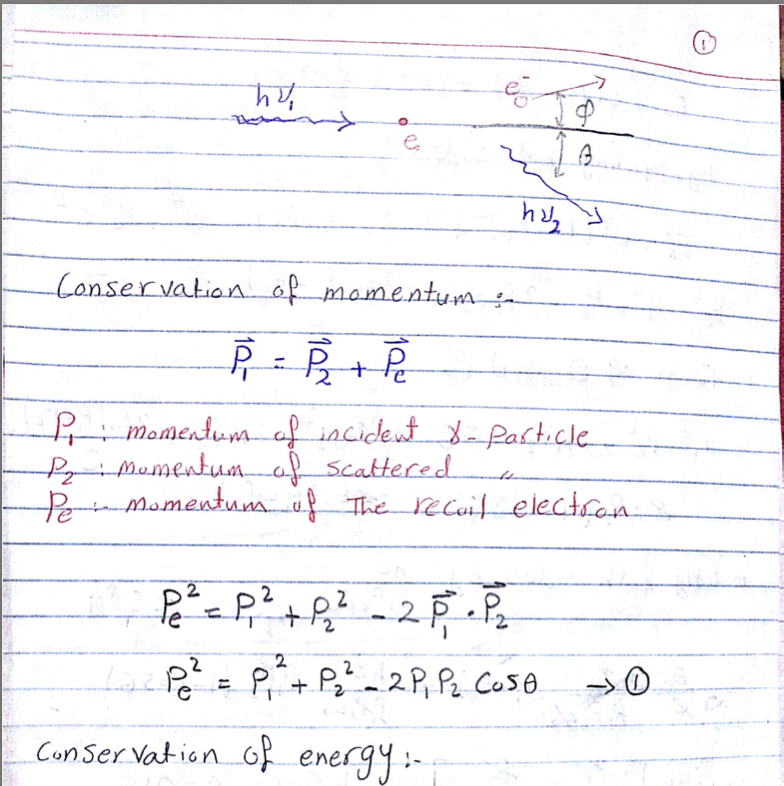 ①
hν₁
e⁻₀
φ
e
θ
hν₂
Conservation of momentum :-
P⃗₁ = P⃗₂ + P⃗e
P₁ : momentum of incident γ- Particle
P₂ : momentum of scattered 〃
Pe :- momentum of The recoil electron
Pe² = P₁² + P₂² - 2 P⃗₁ · P⃗₂
Pe² = P₁² + P₂² - 2P₁P₂ Cosθ → ①
Conservation of energy :-